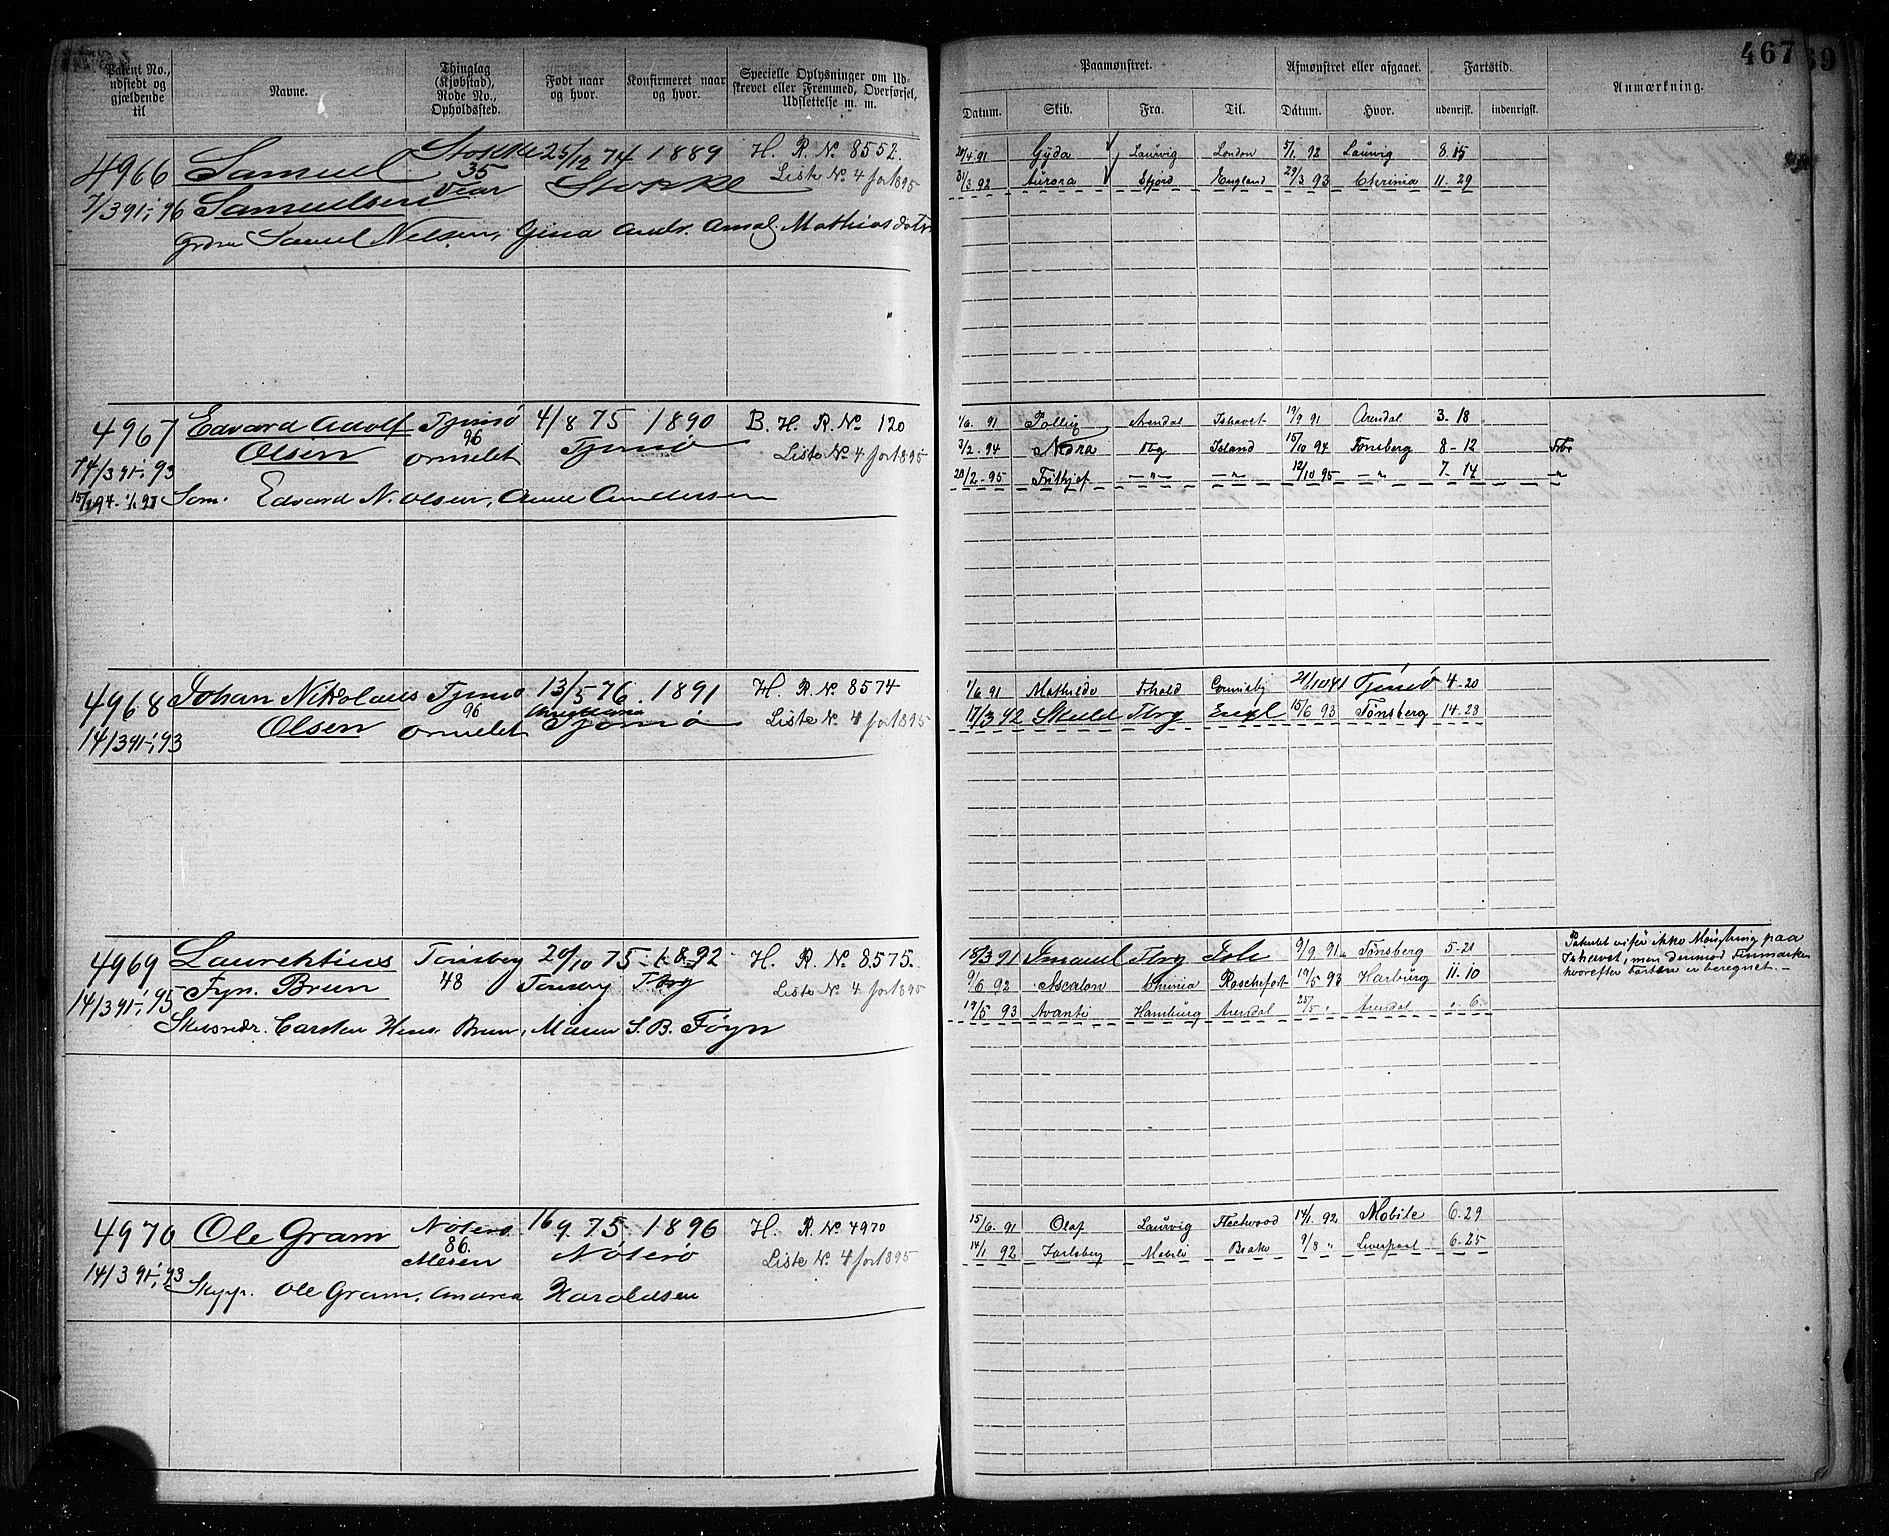 467
Patent No., udstedt og gjældende til
Navne.
Thinglag (Kjøbstad), Rode No., Opholdssted.
Født naar og hvor.
Konfirmeret naar og hvor.
Specielle Oplysninger om Udskrevet eller Fremmed, Overførsel, Udslettelse m. m.
Paamønstret.
Afmønstret eller afgaaet.
Fartstid.
Anmærkning.
Datum. Skib. Fra. Til. Datum. Hvor. udenrigsk. indenrigsk.
4966 Samuel Stokke 25/12 74 1889 H. R. No 8552.
35 Stokke Liste No 4 for 1895
7/3 91-; 96 Samuelsen Vear
Samuel Nelsen, Gina Andr. Amal. Mathiasdatr
20/4 91 Gyda Laurvig London 5/1. 92 Laurvig 8. 15
31/3 92 Aurora Sfjord England 29/3 93 Chrinia 11. 29
4967 Edvard Adolf Tjømø 4/8 75 1890 B. H. R. No 120
96 Liste No 4 for 1895
14/3 91-; 93 Olsen Ormelet Tjømø
Søm. Edvard N. Olsen, Anne Andersen
1/6. 91 Pollux Arendal Ishavet 19/9 91 Arendal 3. 18
3/2. 94 Nora Tbg Island 15/10 94 Tønsberg 8 - 12
28/2. 95 Frithjof -"- -"- 12/10 95 -"- 7. 14
4968 Johan Nikolaus Tjømø 13/5 76 1891 H. R. No 8574
96 Liste No 4 for 1895
14/3 91-; 93 Olsen Ormelet Tjømø
1/6 91 Mathilde Frhald 21/10 91 Tjømø 4 - 20
17/3 92 Skuld Tbrg Engl 15/6 93 Tønsberg 14 - 28
4969 Laurentius Tønsberg 29/10 75 1892 H. R. No 8575.
Fyn. Bruun 48 Tønsberg Tbrg Liste No 4 for 1895
14/3 91-; 95
Skibsredr. Carsten Hans Bruun, Maren S. B. Føyn
18/3 91 Ismael Tbrg 9/9 91 Tønsberg 5 - 21
9/6 92 Ascalon Chrinia Rochefort 19/5 93 Harburg 11. 10
19/5 93 Avanti Hamburg Arendal 25/5 " Arendal ". 6
Patentet viser ikke Mønstring paa
Ishavet, men derimod Finmarken
hvorefter Fartstid er beregnet.
4970 Ole Gram Nøterø 16/9. 75. 1896 H. R. No 4970
86. Nøterø Liste No 4 for 1895
14/3 91-; 93 Skipp. Ole Gram, Andrea Haroldsen
15/6. 91 Olaf Laurvig Fleetwood 14/1 92 Mobile 6. 29
14/1 92 Jarlsberg Mobile Brake 9/8 " Liverpool 6. 25